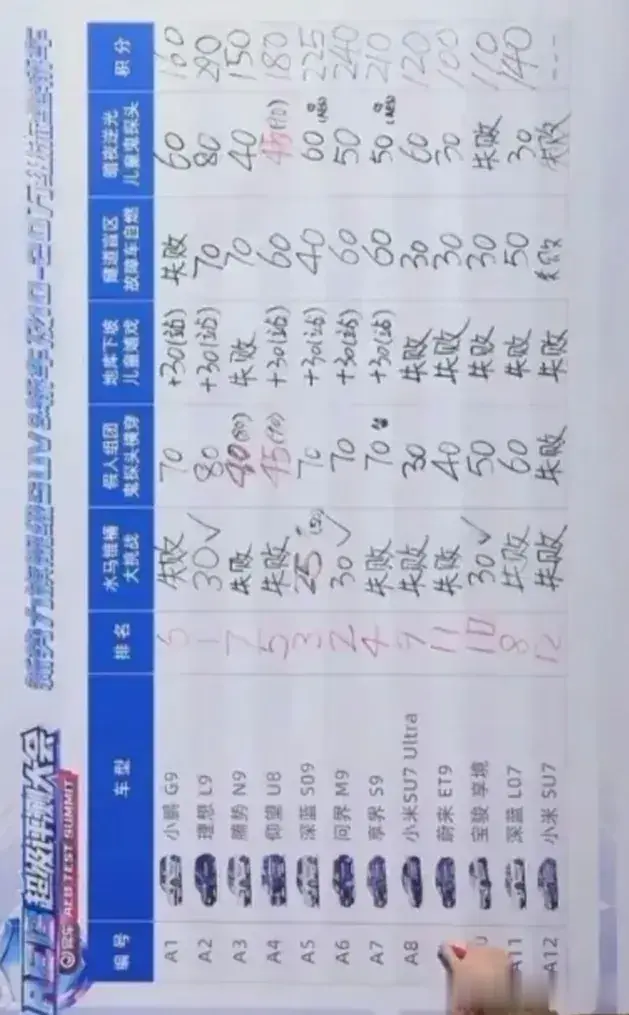 AEB超级评测大会
AEB TEST SUMMIT
新势力旗舰级SUV&轿车及10-20万级
编号 车型 排名 水马锥桶大挑战 假人组团鬼探头横穿 地库下坡儿童嬉戏 隧道盲区故障车自燃 暗夜逆光儿童鬼探头 积分
A1 小鹏 G9 6 失败 70 +30(站) 失败 60 160
A2 理想 L9 1 30✓ 80 +30(站) 70 80 290
A3 腾势 N9 7 失败 40(80) 失败 70 40 150
A4 仰望 U8 5 失败 45(90) +30(站) 60 45(90) 180
A5 深蓝 S09 3 25(50) 70 +30(站) 40 60(AES) 225
A6 问界 M9 2 30✓ 70 +30(站) 60 50 240
A7 享界 S9 4 失败 70 +30(站) 60 50(AES) 210
A8 小米SU7 Ultra 9 失败 30 失败 30 60 120
蔚来 ET9 11 失败 40 失败 30 30 100
宝骏 享境 10 30✓ 50 失败 30 失败 110
A11 深蓝 L07 8 失败 60 失败 50 30 140
A12 小米 SU7 12 失败 失败 失败 失败 失败 ---